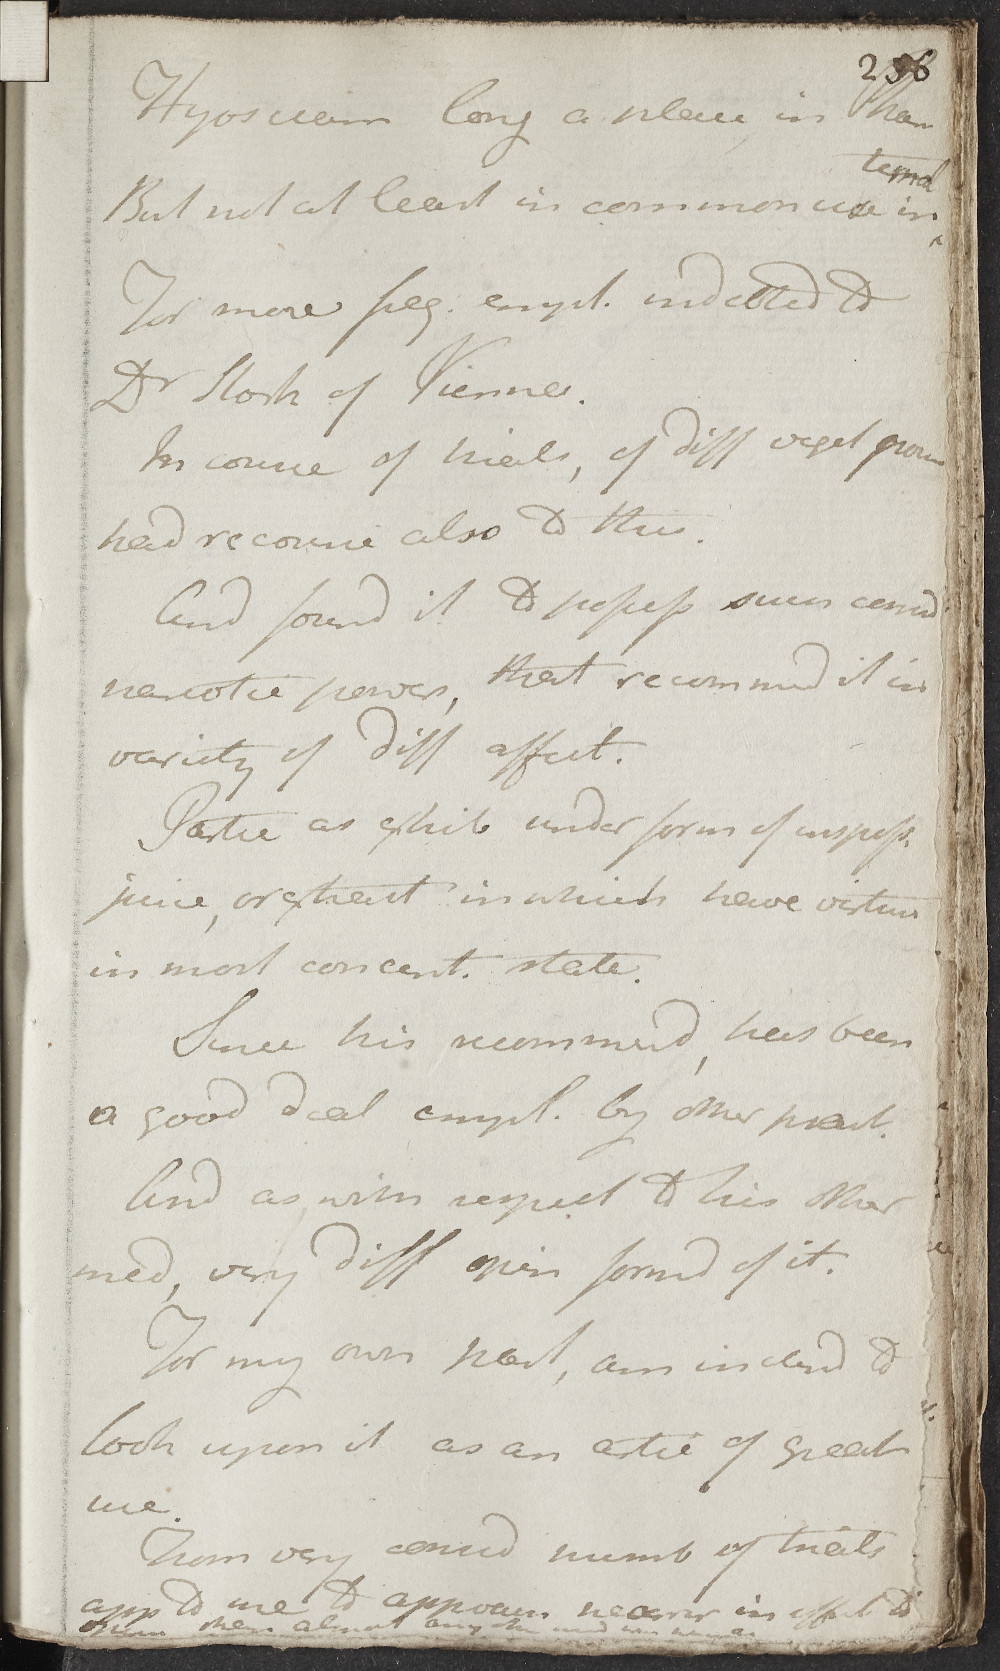 236
Hyosciam long a place in Phar
ternal
But not at least in common use in
For more freq. empl. indebted to
Dr Stork of Vienna.
In course of trials, of diff veget
had recourse also to this.
And found it to possess such consid
narcotic power, that recommend it in
variety of diff affect.
Partic as exhib under form of inspiss.
juice, or extract in which have virtues
in most concent. state.
Since his recommend, has been
a good deal empl. by other pract.
And as with respect to his other
med, very diff opin formd of it.
For my own part, am inclind to
look upon it as an artic of great
use.
From very consid numb of trials
app to me to approach nearer in effect to
than almost any